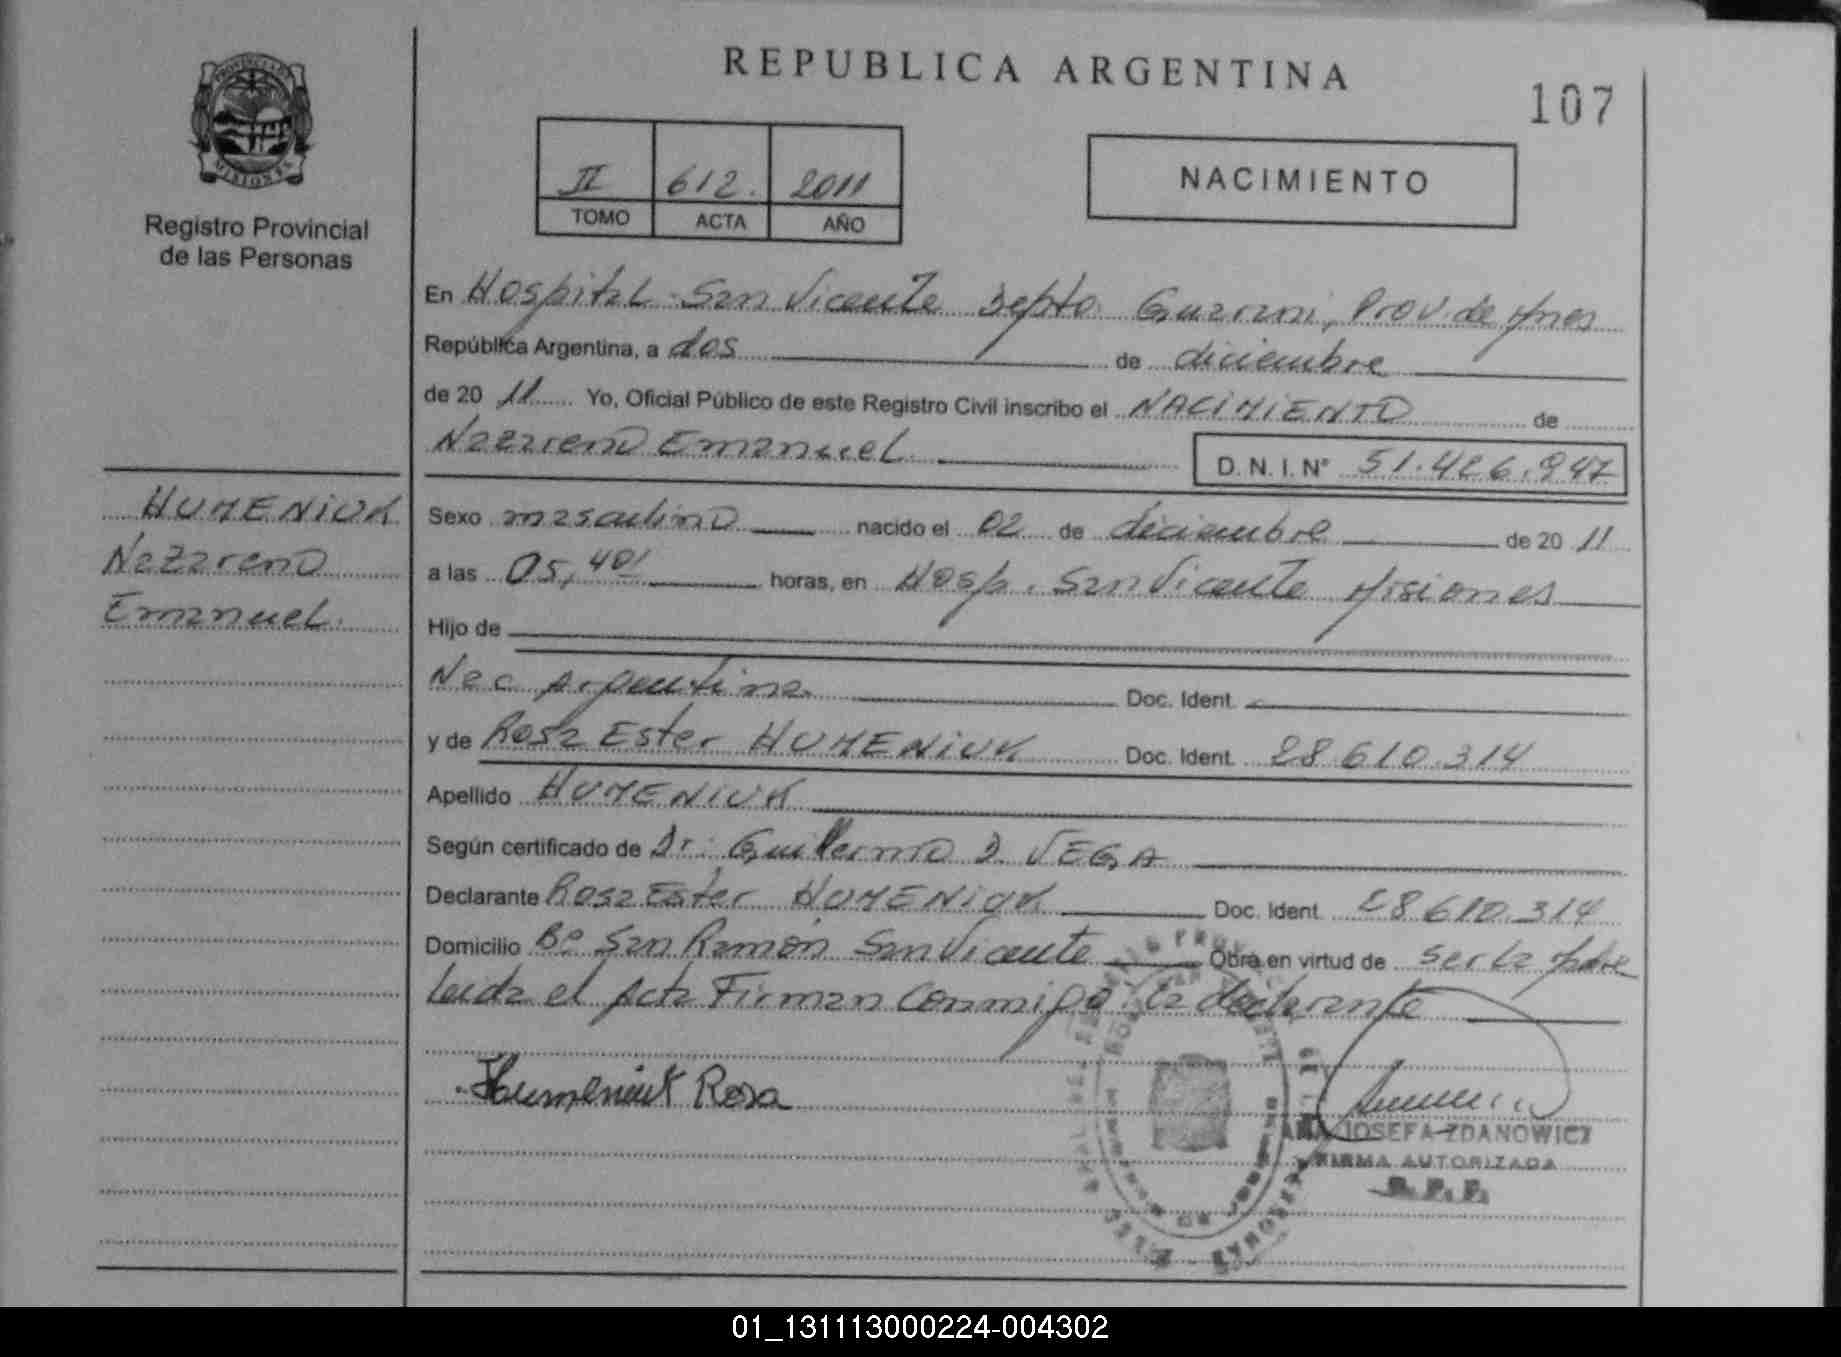 REPUBLICA ARGENTINA
107
PROVINCIA DE
MISIONES
Registro Provincial
de las Personas
II 612. 2011
TOMO ACTA AÑO
NACIMIENTO
En Hospital San Vicente Depto. Guarani, Prov. de Mnes
República Argentina, a dos de diciembre
de 20 11 Yo, Oficial Público de este Registro Civil inscribo el NACIMIENTO de
Nazareno Emanuel. D. N. I. N° 51.426.947
HUMENIUK
Nazareno
Emanuel.
Sexo masculino nacido el 02 de diciembre de 20 11
a las 05,40' horas, en Hosp. San Vicente Misiones
Hijo de
Nac Argentina Doc. Ident.
y de Rosa Ester HUMENIUK Doc. Ident. 28.610.314
Apellido HUMENIUK
Según certificado de Dr: Guillermo D. VEGA
Declarante Rosa Ester HUMENIUK Doc. Ident. 28.610.314
Domicilio B° San Ramón San Vicente Obra en virtud de ser la
Leida el Acta Firman Conmigo la declarante
Humeniuk Rosa
JOSEFA ZDANOWICZ
FIRMA AUTORIZADA
01_131113000224-004302